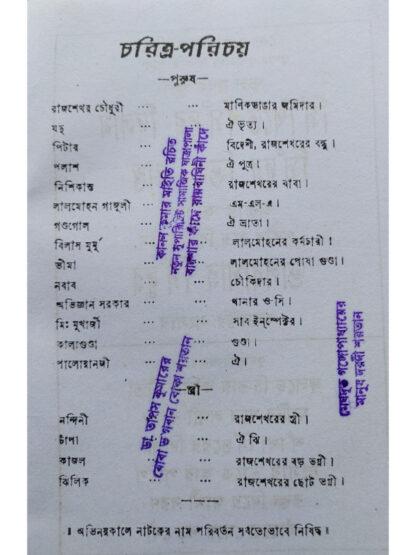 চরিত্র-পরিচয়
—পুরুষ—
রাজশেখর চৌধুরী ... ... মাণিকডাঙার জমিদার।
যদু ... ... ঐ ভৃত্য।
পিটার ... ... বিদেশী, রাজশেখরের বন্ধু।
পলাশ ... ... ঐ পুত্র।
নিশিকান্ত ... ... রাজশেখরের বাবা।
লালমোহন গাঙ্গুলী ... ... এম-এল-এ।
গণ্ডগোল ... ... ঐ ভ্রাতা।
বিলাস মুর্মু ... ... লালমোহনের কর্মচারী।
ভীমা ... ... লালমোহনের পোষা গুণ্ডা।
নবাব ... ... চৌকিদার।
অভিজ্ঞান সরকার ... ... থানার ও-সি।
মিঃ মুখার্জী ... ... সাব ইন্সপেক্টর।
কালাগুণ্ডা ... ... গুণ্ডা।
পালোয়ানজী ... ... ঐ।
—স্ত্রী—
নন্দিনী ... ... রাজশেখরের স্ত্রী।
চাঁপা ... ... ঐ ঝি।
কাজল ... ... রাজশেখরের বড় ভগ্নী।
ঝিলিক ... ... রাজশেখরের ছোট ভগ্নী।
॥ অভিনয়কালে নাটকের নাম পরিবর্তন সর্বতোভাবে নিষিদ্ধ ॥
কানন কুমার মাইতি রচিত
নতুন সুপারহিট সামাজিক যাত্রাপালা
বাদশার ফাঁদে রায়বাঘিনী কাঁদে
ডা. তাপস কুমারের
বোবা ভগবান বোকা শয়তান
মেঘদূত গঙ্গোপাধ্যায়ের
মানুষ দরদী শয়তান